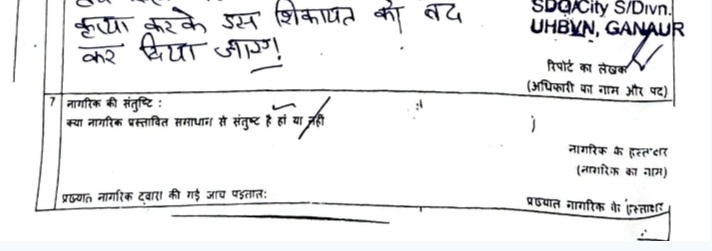 कृपा करके इस शिकायत को बंद
कर दिया जाए!
SDO/City S/Divn.
UHBVN, GANAUR
रिपोर्ट का लेखक
(अधिकारी का नाम और पद)
7 नागरिक की संतुष्टि :
क्या नागरिक प्रस्तावित समाधान से संतुष्ट है हां या नहीं
नागरिक के हस्ताक्षर
(नागरिक का नाम)
प्रख्यात नागरिक द्वारा की गई जांच पड़ताल:
प्रख्यात नागरिक के हस्ताक्षर